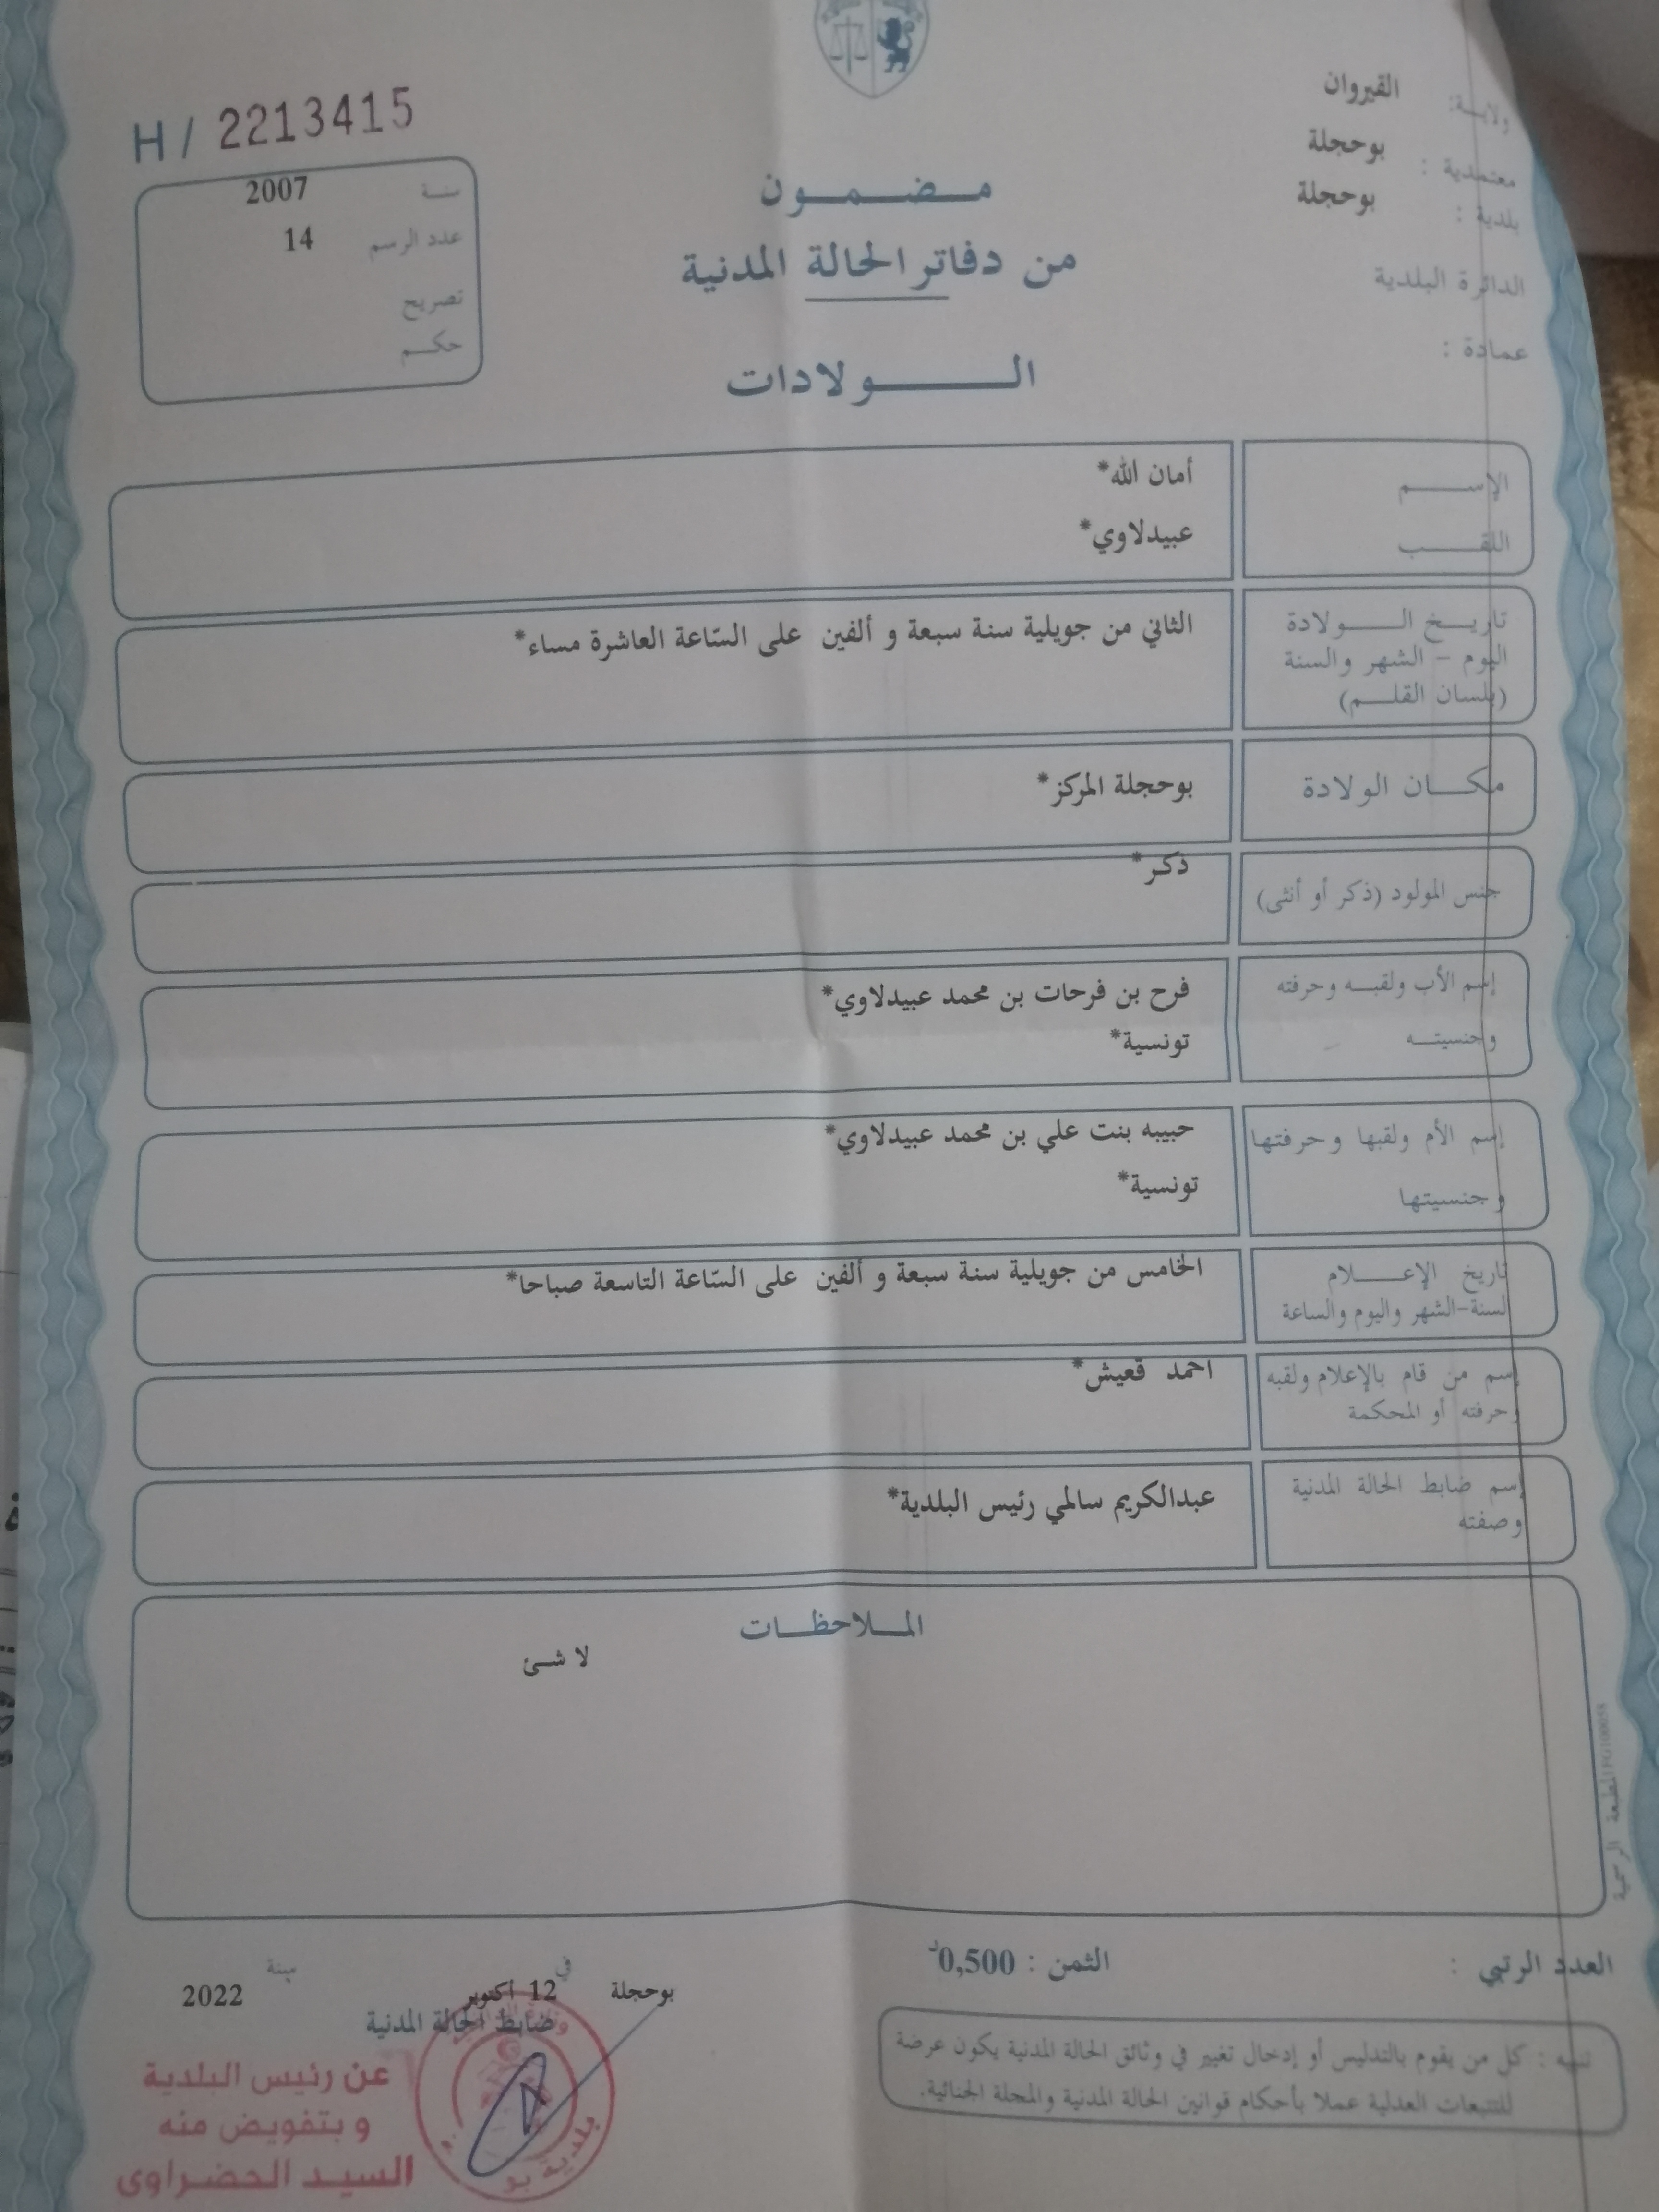 ولاية: القيروان
معتمدية : بوحجلة
بلدية : بوحجلة
الدائرة البلدية
عمادة :
H / 2213415
سنة 2007
عدد الرسم 14
تصريح
حكم
مضمون
من دفاتر الحالة المدنية
الولادات
الإسم أمان الله*
اللقب عبيدلاوي*
تاريخ الولادة
اليوم - الشهر والسنة
(بلسان القلم)
الثاني من جويلية سنة سبعة و ألفين على السّاعة العاشرة مساء*
مكان الولادة بوحجلة المركز*
جنس المولود (ذكر أو أنثى) ذكر*
إسم الأب ولقبه وحرفته فرح بن فرحات بن محمد عبيدلاوي*
وجنسيته تونسية*
إسم الأم ولقبها وحرفتها حبيبه بنت علي بن محمد عبيدلاوي*
وجنسيتها تونسية*
تاريخ الإعلام
السنة-الشهر واليوم والساعة
الخامس من جويلية سنة سبعة و ألفين على السّاعة التاسعة صباحا*
إسم من قام بالإعلام ولقبه
وحرفته أو المحكمة
احمد قعيش*
إسم ضابط الحالة المدنية
وصفته
عبدالكريم سالمي رئيس البلدية*
الملاحظات
لا شئ
المطبعة الرسمية
العدد الرتبي :
الثمن : 0,500د
بوحجلة في 12 اكتوبر سنة 2022
ضابط الحالة المدنية
تنبيه : كل من يقوم بالتدليس أو إدخال تغيير في وثائق الحالة المدنية يكون عرضة
للتتبعات العدلية عملا بأحكام قوانين الحالة المدنية والمجلة الجنائية.
عن رئيس البلدية
و بتفويض منه
السيد الحضراوي
بلدية بو